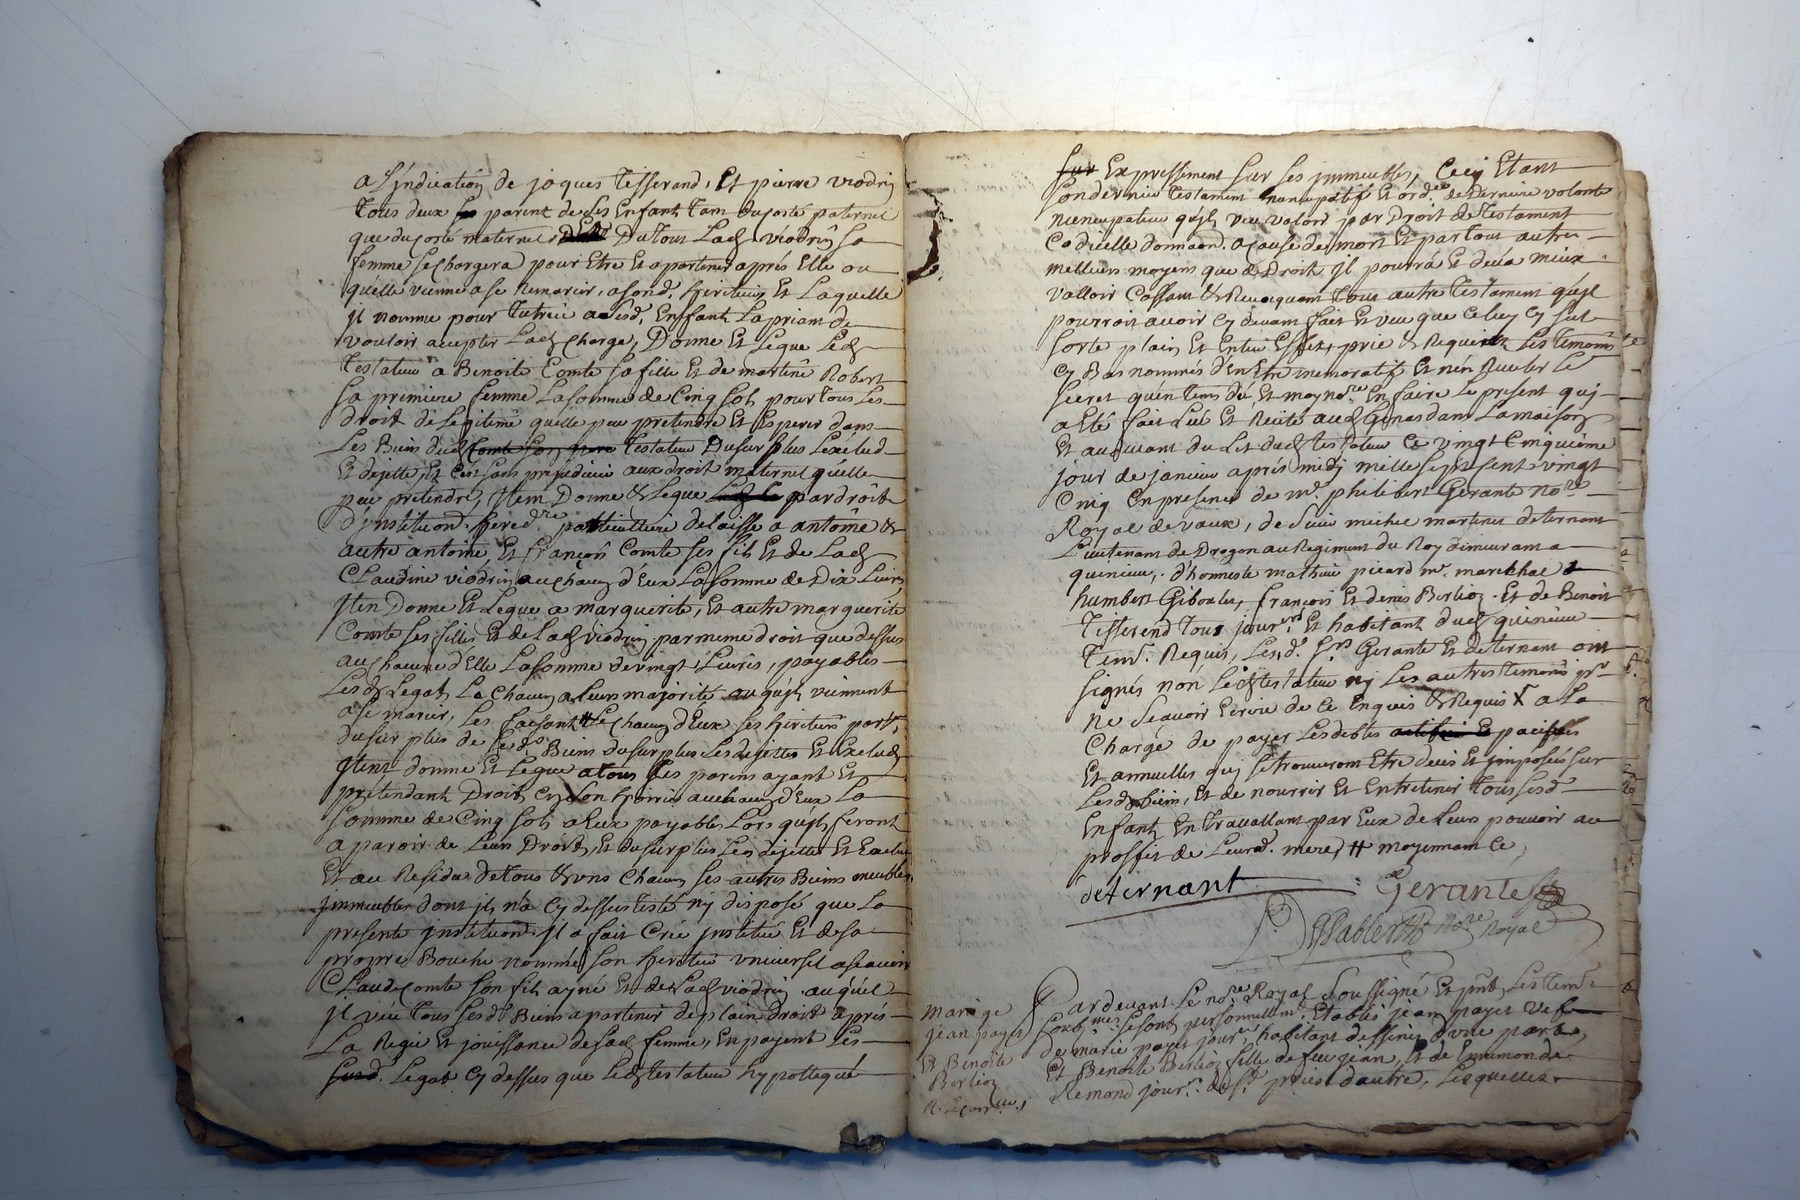 a L'indication de joques Tisserand, Et pierre viodrin
Tous deux parent de ses Enfant Tam du costé paternel
que du costé maternel Du Tout Lad viodrin sa
femme se chargera pour Etre Et apartenir aprés Elle ou
quelle vienne a se Remarier, a sond. heritier Et Laquelle
jl nomme pour Tutrice a sesd. Enfant La priant de
vouloir accepter Lad Charge, Donne Et Legue Led
Testateur a Benoite Comte sa fille Et de martine Robert
sa premiere femme La somme de Cinq sols pour Tous Les
droit de Legitime quelle peu pretendre Et Esperer dans
Les Biens dud Comte son pere Testateur Du surplus L'exclud
Et dejette, Et Cest sans prejudice aux droit maternel quelle
peu pretendre, jtem Donne & Legue par droit
d'jnstitution hered.re particulliere delaisse a antoine &
autre antoine Et françois Comte ses fils Et de Lad
Claudine viodrin a chacun d'Eux La somme de Dix Livres
jtem Donne Et Legue a marguerite, Et autre marguerite
Comte ses filles Et de Lad viodrin par meme droit que dessus
a chacune d'Elle La somme de vingt Livres, payables
Lesd Legats a Chacun a Leurs majorité ou qu'jls viennent
a se marier, Les faisant Chacun d'Eux ses heritiers part.
du surplus de sesd. Biens du surplus Les dejettes Et Exclud
jtem donne Et Legue a tous ses parens ayant Et
pretendant Droit En son hoirie a chacun d'Eux La
somme de Cinq sols a Eux payables Lors qu'jls feront
aparoir de Leurs Droit, Et du surplus Les dejette Et Exclud
Et au Residu de tous & uns Chacun ses autres Biens meubles
jmmeubles dont jl n'a Cy dessus testé ny disposé que La
presente jnstitution. jl a fait Crée jnstitué Et de sa
propre Bouche nommé son heritier universel a scavoir
Claude Comte son fils ayné Et de Lad viodrin auquel
jl veu Tous sesd. Biens apartenir de plain Droit aprés
La Regie Et jouissance de sad femme, En payent Les
susd. Legats Cy dessus que Led testateur hypotteque
sur Expressement sur ses jmmeubles, Cecy Etant
son dernier Testament nuncupatif Et ord.ce de Derniere volonte
nuncupative qu'jl veu valoir par Droit de Testament
Codicille donnaon. a cause de mort Et par Tout autre
meilleurs moyens que de Droit jl pourrà Et devra mieux
valloir Cassant & Revoquant Tous autre Testament qu'jl
pourroit avoir Cy devant fait Et veu que Celuy Cy sul
sorte plain Et Entier Effet, prie & Requier Les Temoins
Cy Bas nommés d'en Etre memoratif Et n'en Reveler Le
secret qu'en Tems dû Et moy no.re En faire Le present qui
a Eté fait Lû Et Recité aud Genas dans La maison
Et au devant du Lit dud testateur Ce vingt Cinquieme
jour de janvier aprés midj mille sept sent vingt
Cinq En presence de m.r philibert Gerante no.re
Royal de vaux, de sieur michel martinet deternant
Lieutenant de Dragon au Regiment du Roy demeurant a
quinieu, d'honneste mathieu picard m.e marechal
humbert Giboulet, françois Et denis Berlioz Et de Benoit
Tisserend Tous jour.ers Et habitant dud quinieu
Tem. Requis, Lesd. s.rs Gerante Et deternant ont
signés non Led testateur ny Les autres temoins p.r
ne scavoir Ecrire de Ce Enquis & Requis X a La
Charge de payer Les debtes passives
Et annuelles qui se trouveront Etre deües Et jmposées sur
Lesd biens, Et de nourrir Et Entretenir Tous sesd
Enfant En Travallant par Eux de Leurs pouvoir au
proffit de Leurd. mere, # moyennant Ce
deternant Gerante
Sablet No.re Royal
mariage
jean payet
Et Benoite
Berlioz
Pardevant Le no.re Royal soussigné Et pnt Les Tem.
soub.nés se sont personnellem.t Etablis jean payet vefe
de marie payet jour.er habitant dessiney d'une part,
Et Benoite Berlioz fille de feu jean, Et de Emmonde
Remond jour.r d'autre, Lesquelles